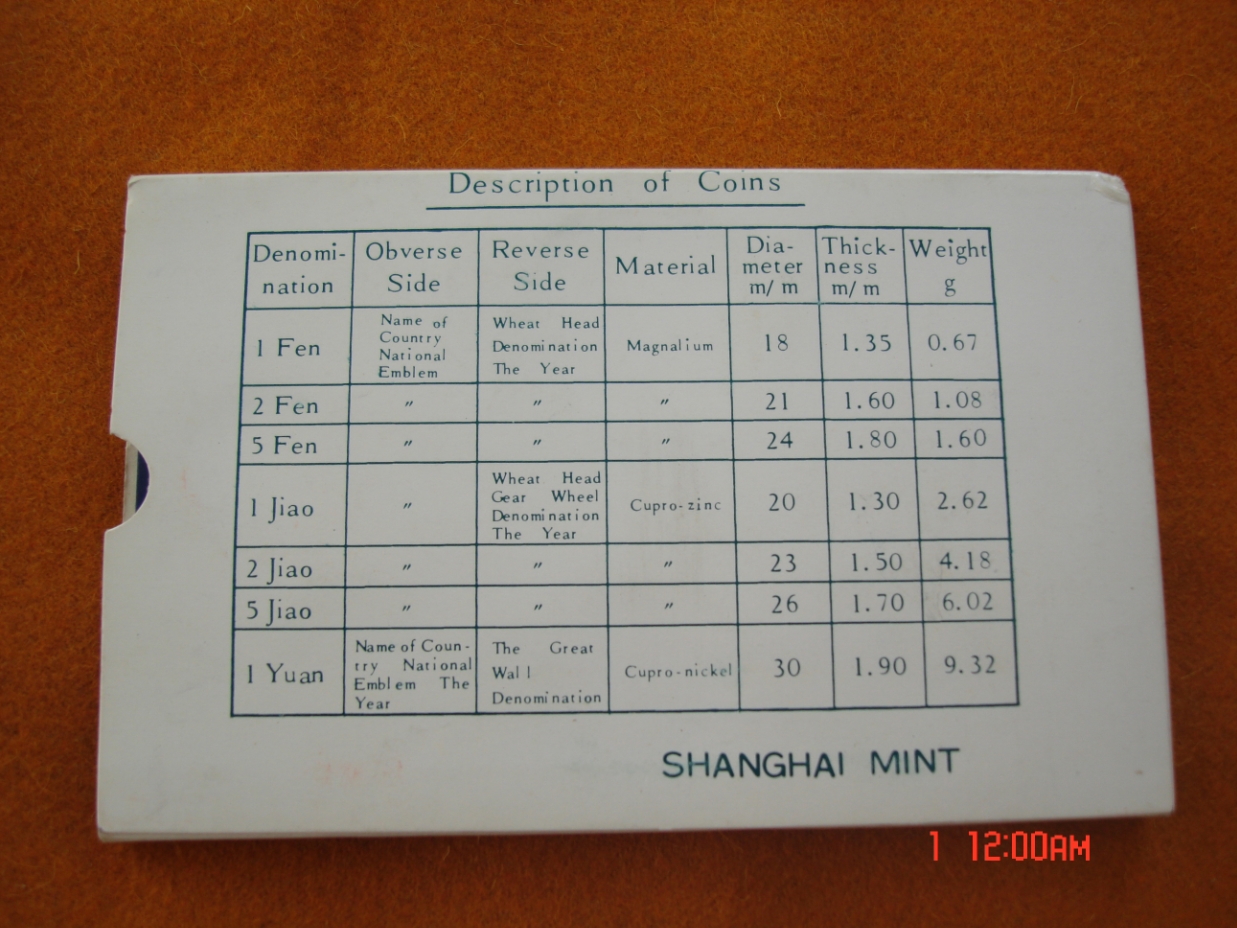 Description of Coins
Denomi-nation Obverse Side Reverse Side Material Dia-meter m/m Thick-ness m/m Weight g
1 Fen Name of Country National Emblem Wheat Head Denomination The Year Magnalium 18 1.35 0.67
2 Fen " " " 21 1.60 1.08
5 Fen " " " 24 1.80 1.60
1 Jiao " Wheat Head Gear Wheel Denomination The Year Cupro-zinc 20 1.30 2.62
2 Jiao " " " 23 1.50 4.18
5 Jiao " " " 26 1.70 6.02
1 Yuan Name of Coun-try National Emblem The Year The Great Wall Denomination Cupro-nickel 30 1.90 9.32
SHANGHAI MINT
1 12:00AM